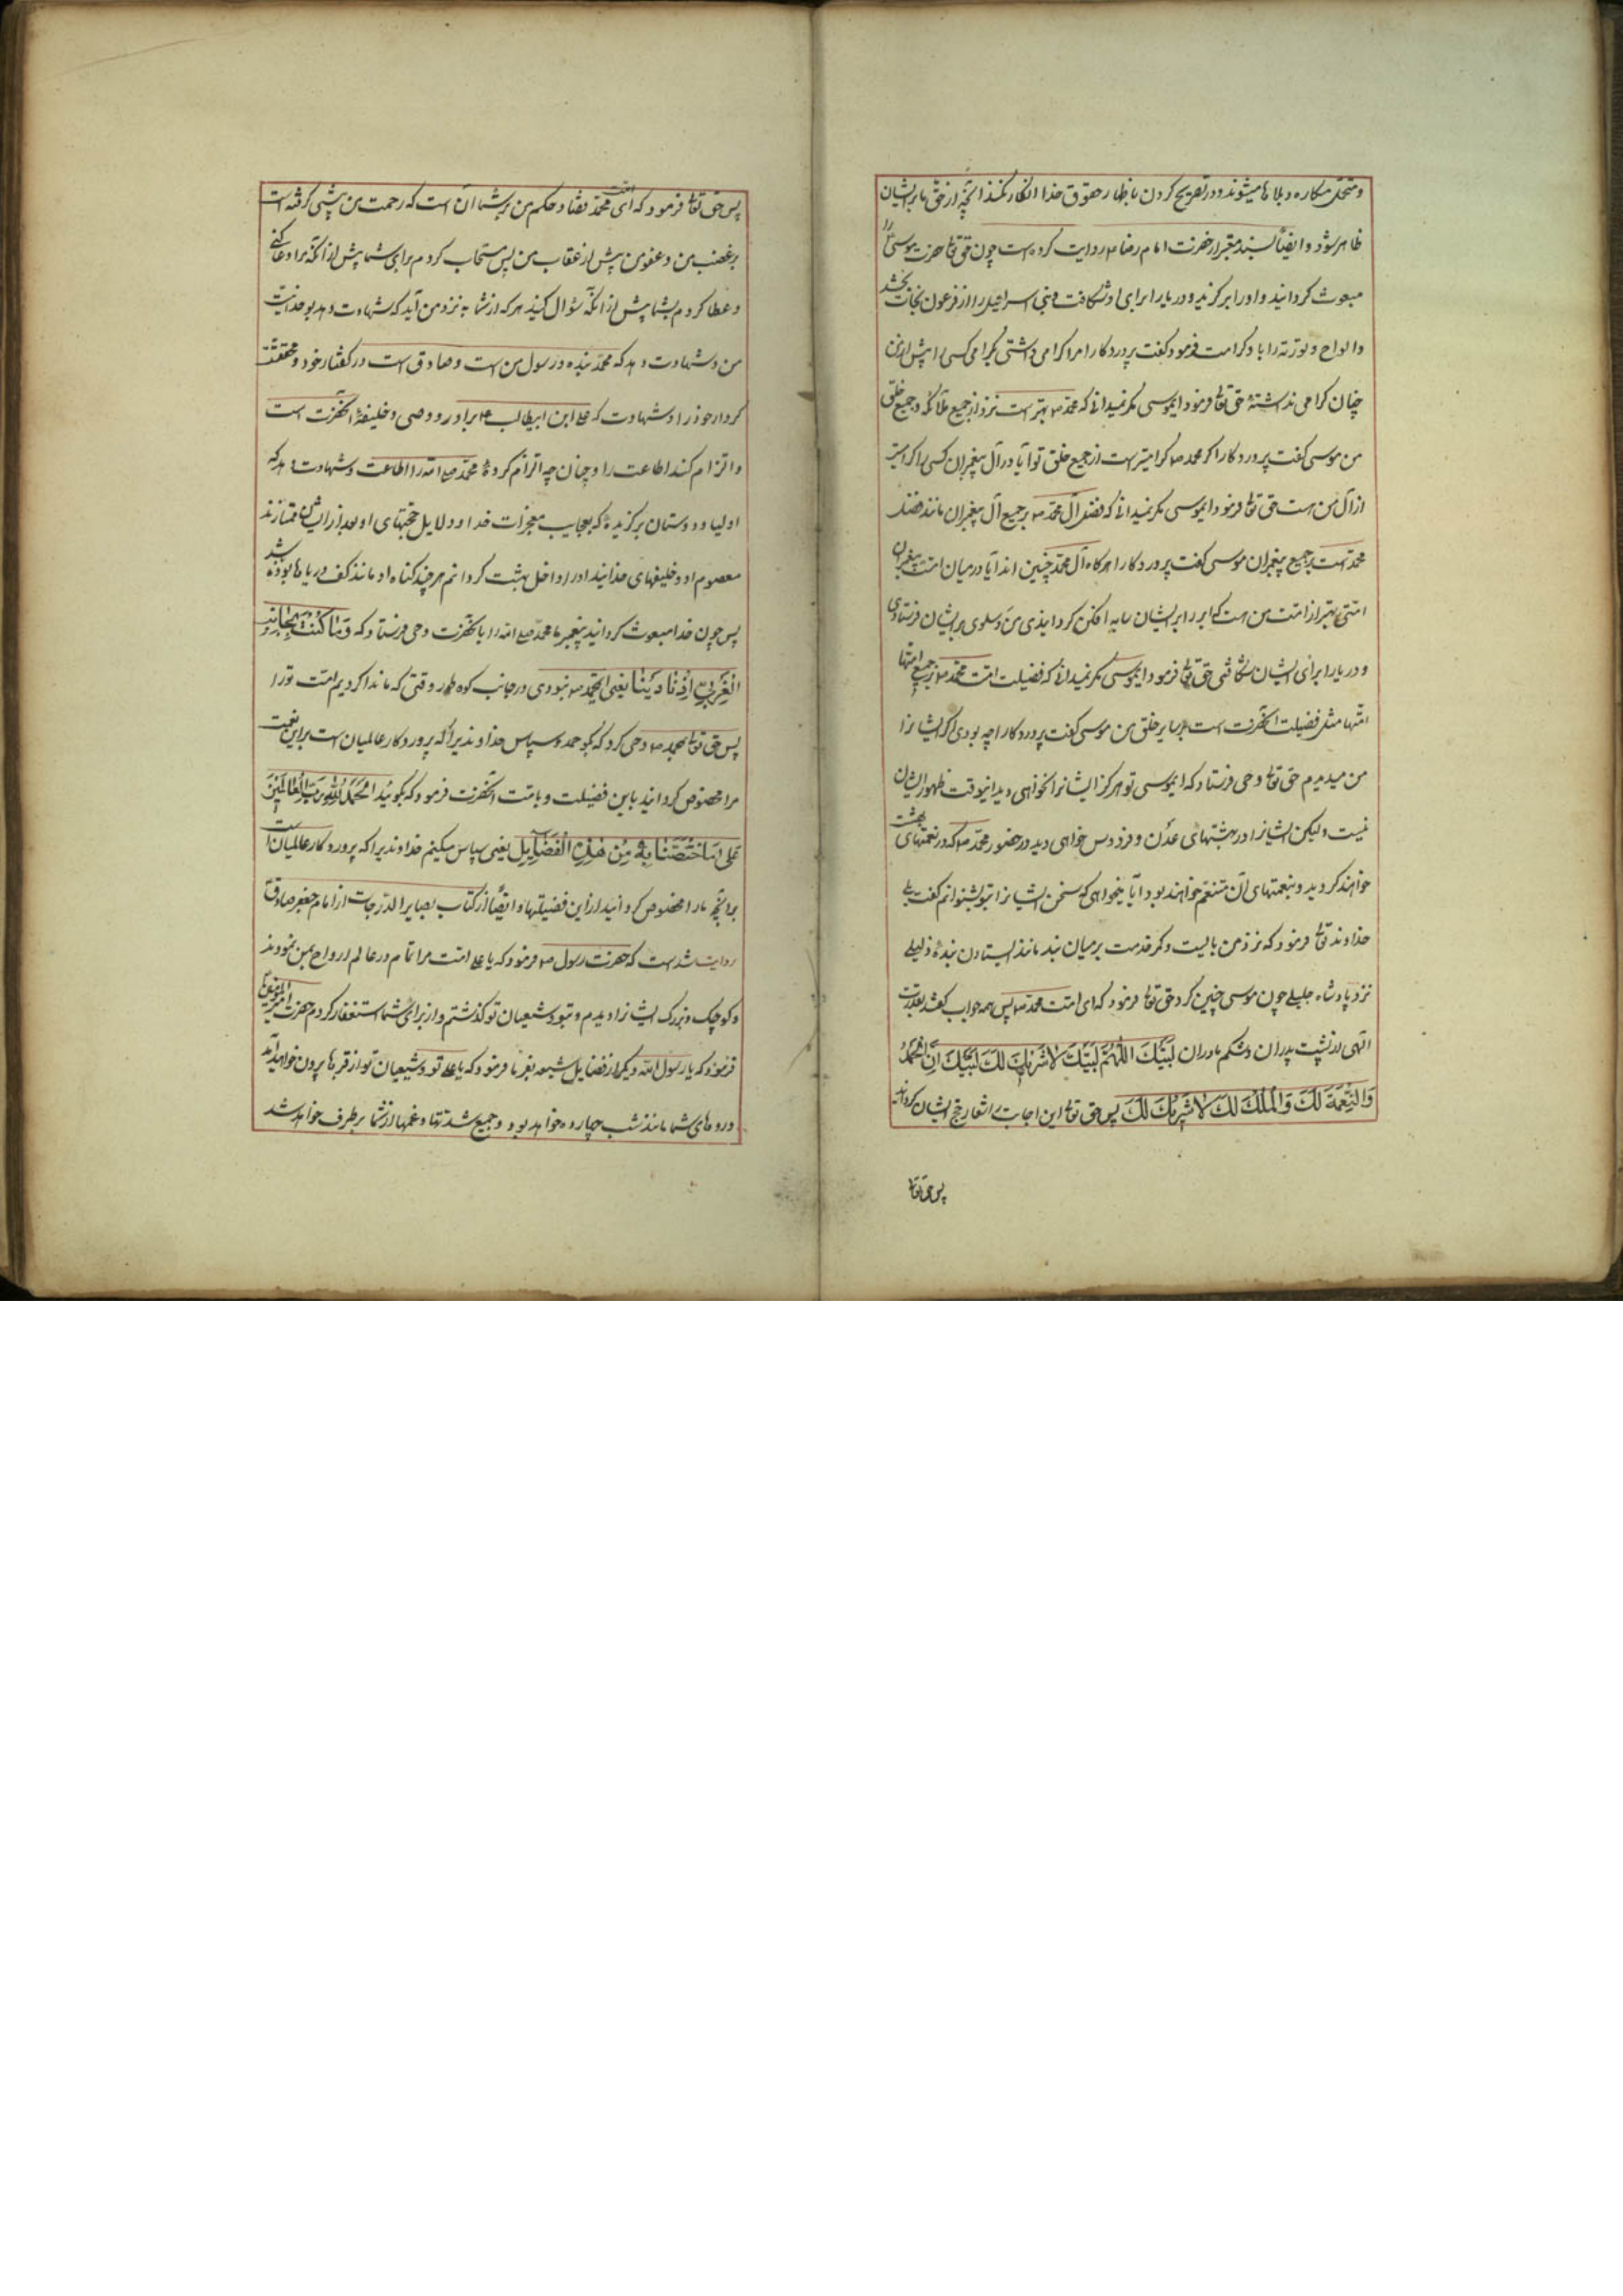 و متحمل مکاره و بلاها میشوند و در تصریح کردن باظهار حقوق خدا انکار نکنند آنچه از حق ما بر ایشان
ظاهر شود و ایضاً بسند معتبر از حضرت امام رضا ع روایت کرده است چون حق تعالی حضرت موسی را
مبعوث کردانید و اورا برکزید و دریا را برای او شکافت و بنی اسرائیل را از فرعون نجات بخشد
و الواح و توریة را باو کرامت فرمود گفت پروردکارا مرا کرامی داشتی بکرامی کسی را پیش از من
چنان کرامی نداشتهٔ حق تعالی فرمود ایموسی مکر نمیدانی که محمد ص بهتر است نزد از جمیع ملائکه و جمیع خلق
من موسی گفت پروردکارا اکر محمد ص کرامیتر است از جمیع خلق تو آیا در آل پیغمبران کسی کرامیتر
از آل من هست حق تعالی فرمود ایموسی مکر نمیدانی که فضل آل محمد ص بر جمیع آل پیغمبران مانند فضل
محمد است بر جمیع پیغمبران موسی گفت پروردکارا هرکاه آل محمد چنین اند آیا در میان امت پیغمبران
امتی بهتر از امت من هست که ابر را بر ایشان سایه افکن کردانیدی من و سلوی بر ایشان فرستادی
و دریا را برای ایشان شکافتی حق تعالی فرمود ایموسی مکر نمیدانی که فضیلت امت محمد ص بر جمیع امتها
امتها مثل فضیلت آنحضرت است بر سایر خلق من موسی گفت پروردکارا چه بودی اکر ایشانرا
من میدیدم حق تعالی وحی فرستاد که ایموسی تو هرکز ایشانرا نخواهی دید اینوقت ظهور ایشان
نیست ولیکن ایشانرا در بهشتهای عدن و فردوس خواهی دید در حضور محمد ص که در نعمتهای بهشت
خواهند کردید و بنعمتهای آن متنعم خواهند بود آیا میخواهی که سخن ایشانرا بتو بشنوانم گفت بلی
خداوند تعالی فرمود که نزد من بایست و کمر خدمت بر میان بند مانند ایستادن بندهٔ ذلیلی
نزد پادشاه جلیلی چون موسی چنین کرد حق تعالی فرمود که ای امت محمد ص پس همه جواب گفتند بقدرت
الهی از پشت پدران و شکم مادران لَبَّیْکَ اللّٰهُمَّ لَبَّیْکَ لَا شَرِیکَ لَکَ لَبَّیْکَ اِنَّ الْحَمْدَ
وَالنِّعْمَةَ لَکَ وَالْمُلْکَ لَکَ لَا شَرِیکَ لَکَ پس حق تعالی این اجابت را شعار حج ایشان کردانید
پس حق تعالی
پس حق تعالی فرمود که ای امت محمد قضا و حکم من بر شما آن است که رحمت من پیشی کرفته است
بر غضب من و عفو من پیش از عقاب من پس مستجاب کردم برای شما پیش از آنکه مرا دعا کنی
و عطا کردم بشما پیش از آنکه سؤال کنید هر که از شما به نزد من آید که شهادت دهد بوحدانیت
من و شهادت دهد که محمد بنده و رسول من است و صادق است در کفتار خود و محقست
کردار خود را و شهادت که علی ابن ابیطالب ع برادر و وصی و خلیفهٔ آنحضرت است
و التزام کند اطاعت را و چنان چه التزام کردهٔ محمد صلی الله را اطاعت و شهادت دهد که
اولیا و دوستان برکزیدهٔ که بعجایب معجزات خدا و دلایل حجتهای او بعد از ایشان ممتازند
معصوم او و خلیفهای خدایند او را داخل بهشت کردانم هر چند کناه او مانند کف دریاها بوده باشد
پس چون خدا مبعوث کردانید پیغمبر ما محمد صلی الله را با آنحضرت وحی فرستاد که وَمَا کُنْتَ بِجَانِبِ
الْغَرْبِیِّ اِذْ نَادَیْنَا یعنی ایمحمد ص نبودی در جانب کوه طور وقتی که ما ندا کردیم امت تورا
پس حق تعالی بمحمد ص وحی کرد که بکو حمد و سپاس خداوندیرا که پروردکار عالمیان است بر این نعمت
مرا مخصوص کردانید باین فضیلت و بامت آنحضرت فرمود که بکوئید اَلْحَمْدُ لِلّٰهِ رَبِّ الْعَالَمِیْنَ
عَلٰی مَا اخْتَصَّنَا بِهٖ مِنْ هٰذِهِ الْفَضَایِلِ یعنی سپاس میکنیم خداوندیرا که پروردکار عالمیان است
برآنچه مارا مخصوص کردانید از این فضیلتها و ایضاً از کتاب بصایر الدرجات از امام جعفر صادق
روایت شده است که حضرت رسول ص فرمود که یا علی امت مرا تمام در عالم ارواح بمن نمودند
و کوچک و بزرک ایشانرا دیدم و بتو و شیعیان تو کذشتم و از برای شما استغفار کردم حضرت امیرالمؤمنین
فرمود که یا رسول الله دیکر از فضایل شیعه بفرما فرمود که یا علی تو و شیعیان تو از قبرها بیرون خواهید آمد
و روهای شما مانند شب چهارده خواهد بود و جمیع شدتها و غمها از شما بر طرف خواهد شد